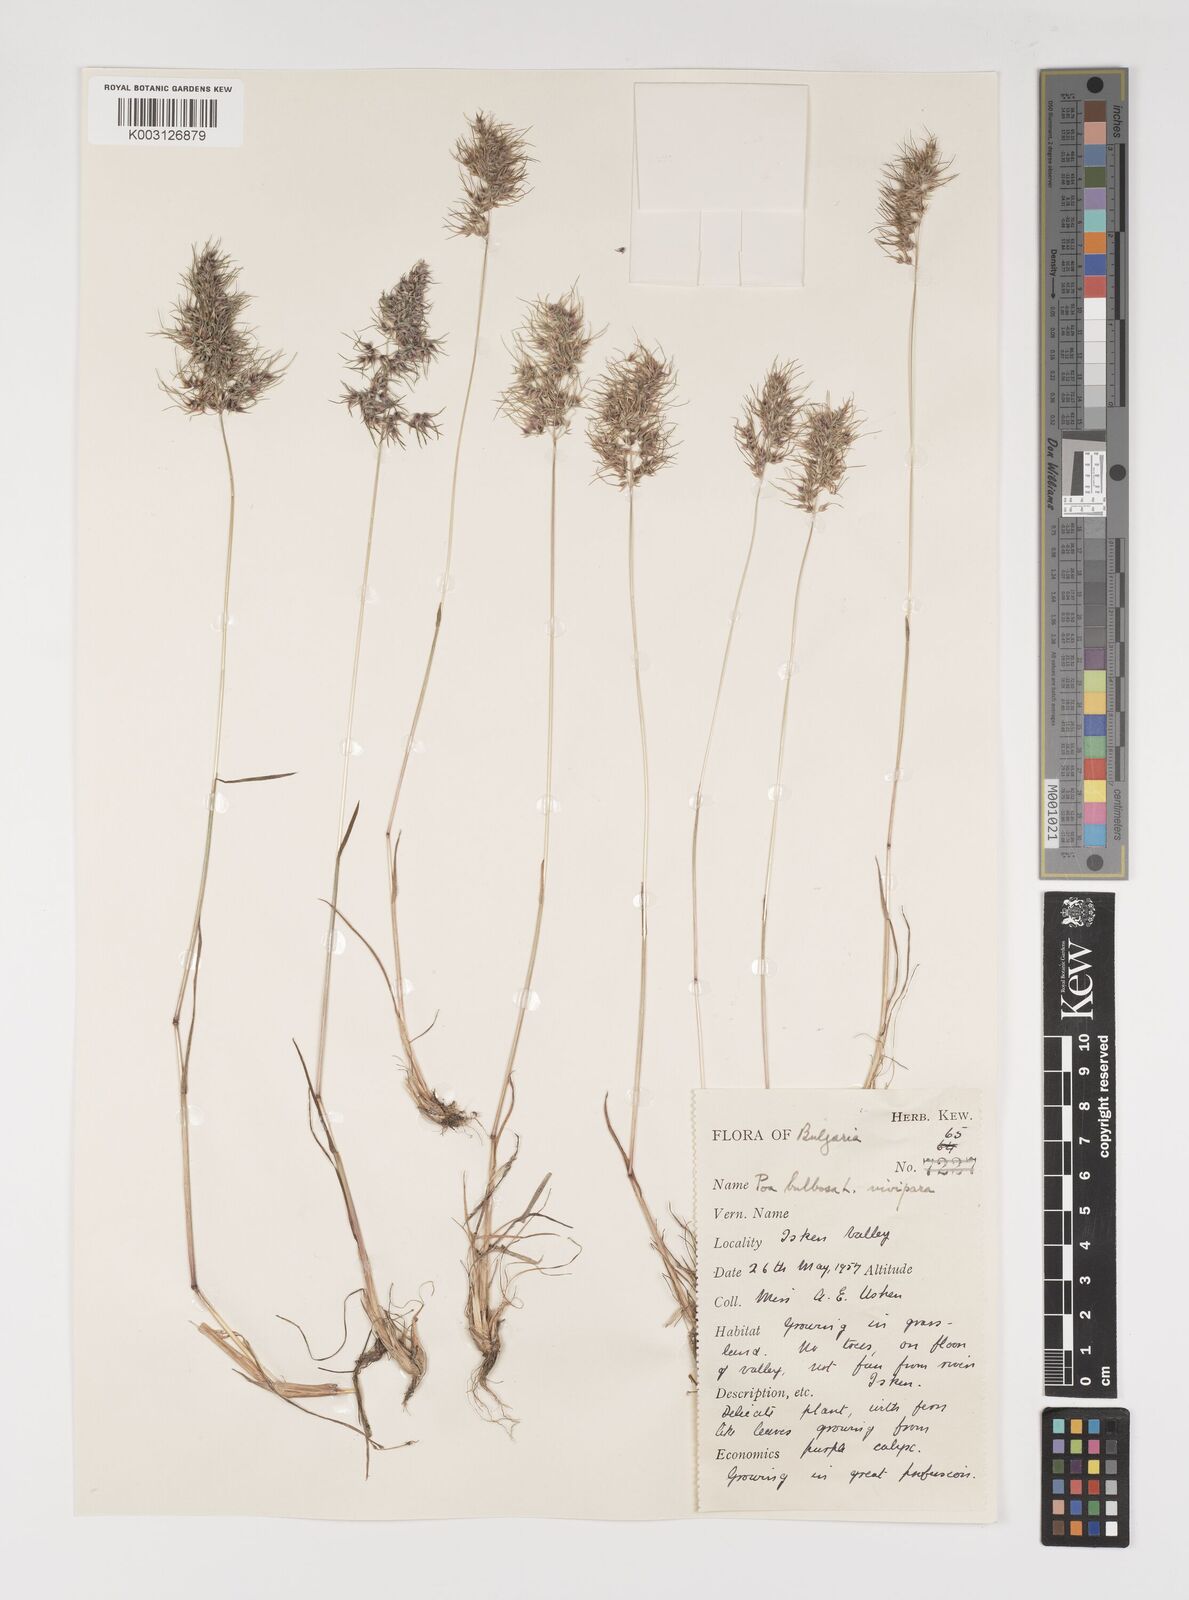 ROYAL BOTANIC GARDENS KEW
K003126879
HERB. KEW.
FLORA OF Bulgaria
65
64
No. 7237
Name Poa bulbosa L. vivipara
Vern. Name
Locality Isker Valley
Date 26th May, 1957 Altitude
Coll. Miss A. E. Usher
Habitat Growing in grass-
land. No trees, on floor
of valley, not far from river
Isker.
Description, etc.
Delicate plant, with fern
like leaves growing from
Economics purple calyx.
Growing in great profusion.
inches
Density
Don Williams
centimeters
M001021
Royal Botanic Gardens
Kew
0 1 2 3 4 5 6 7 8 9 10
cm
copyright reserved